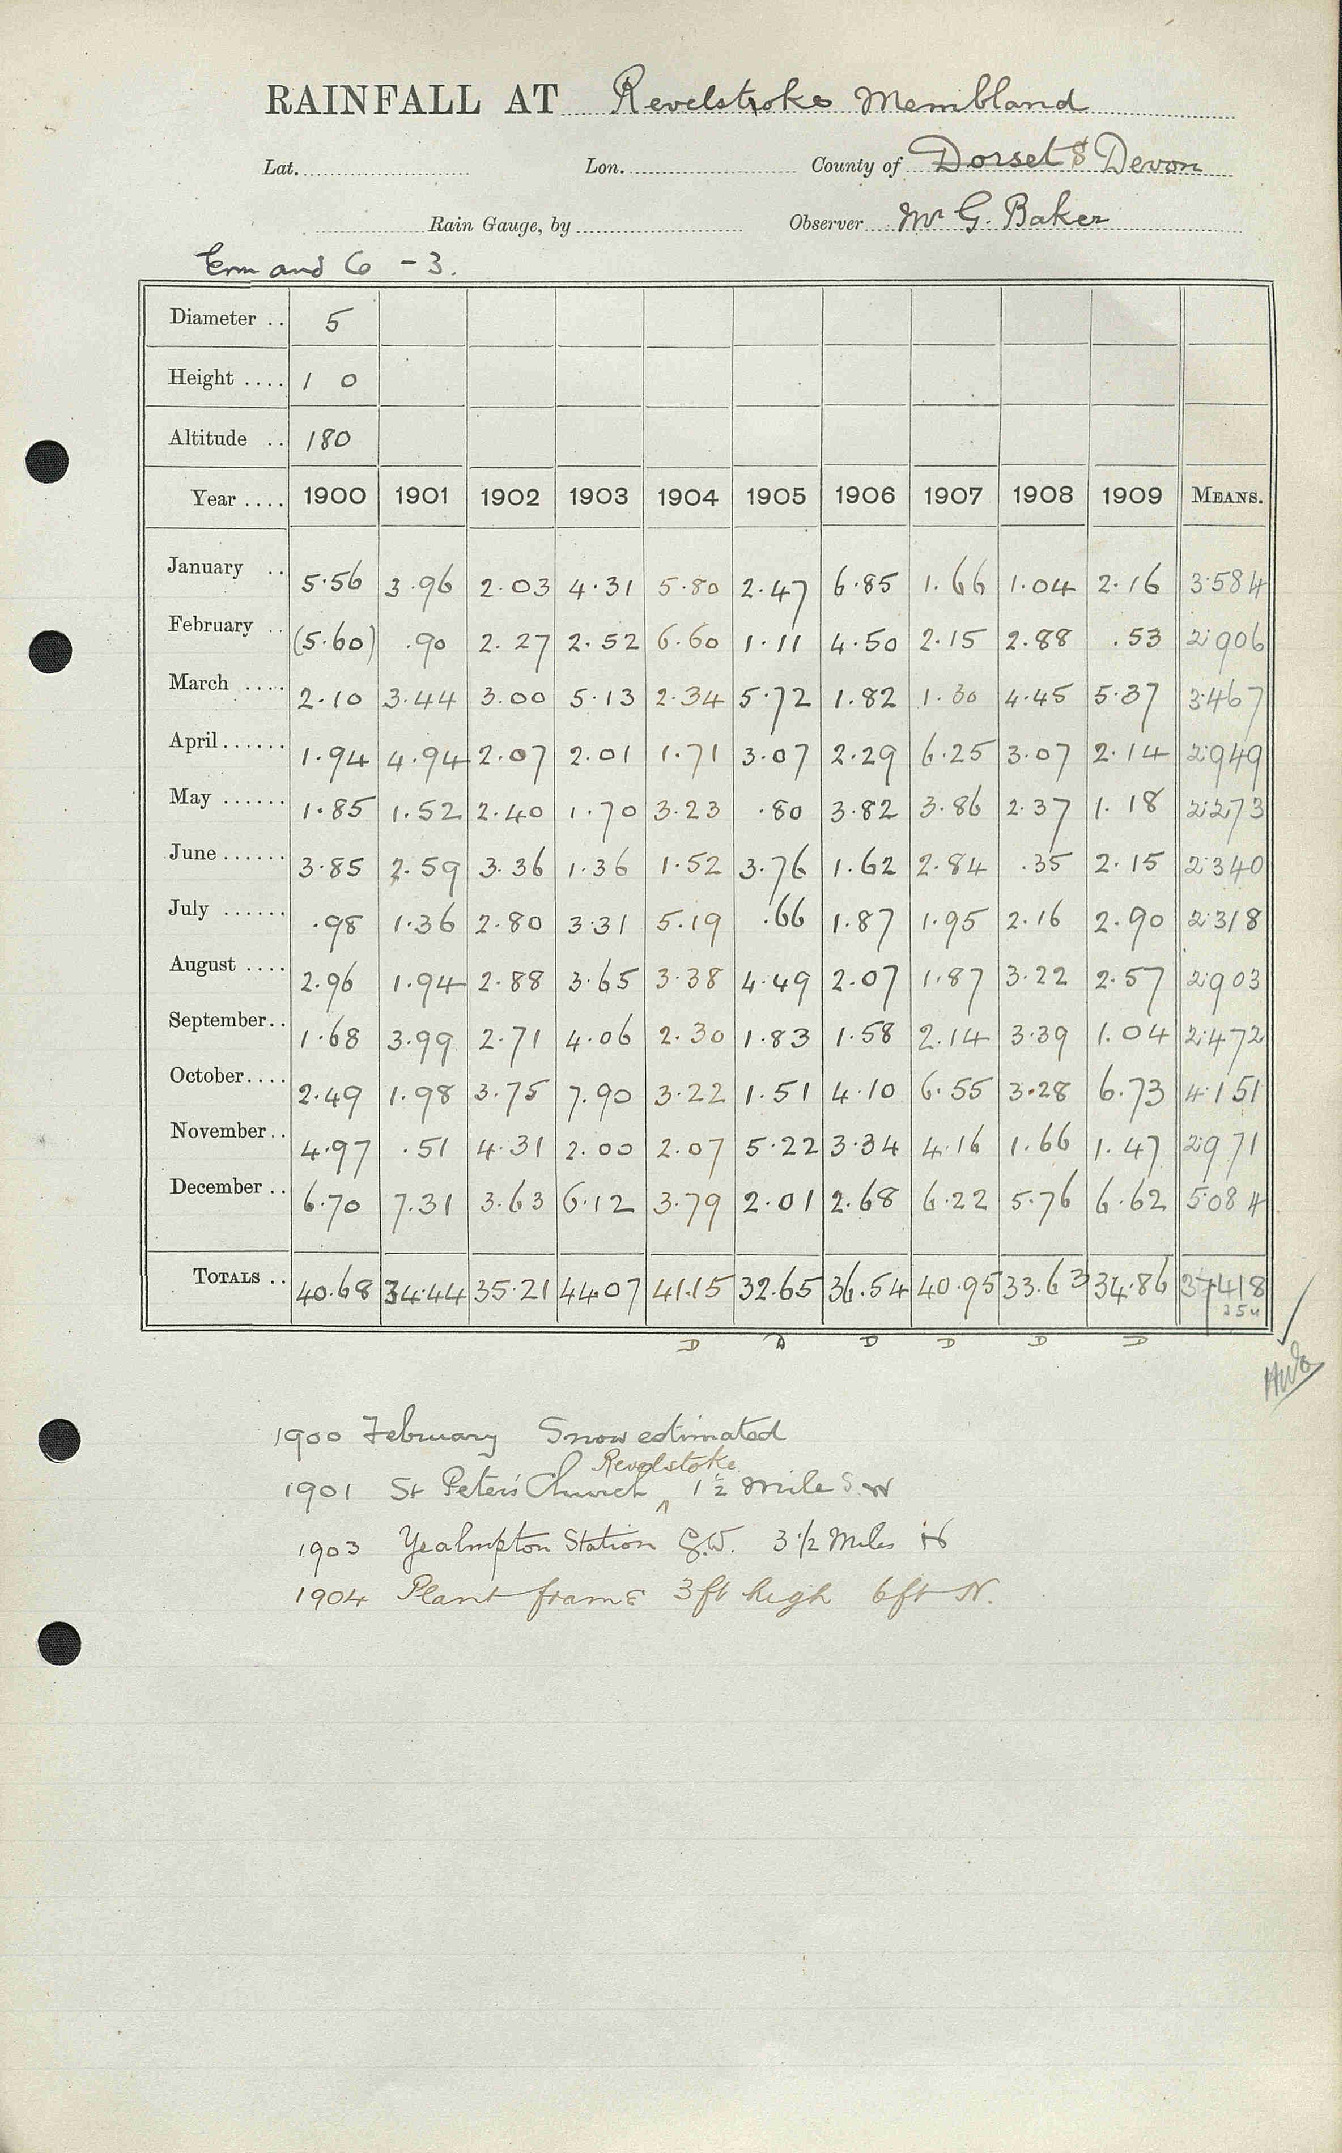 RAINFALL AT Revelstroke Membland
Lat. Lon. County of Dorset S Devon
Rain Gauge, by Observer Mr G. Baker
Erm and 6 - 3.
Diameter .. 5
Height .... 1 0
Altitude .. 180
Year .... 1900 1901 1902 1903 1904 1905 1906 1907 1908 1909 MEANS.
January .. 5.56 3.96 2.03 4.31 5.80 2.47 6.85 1.66 1.04 2.16 3.584
February .. (5.60) .90 2.27 2.52 6.60 1.11 4.50 2.15 2.88 .53 2.906
March .... 2.10 3.44 3.00 5.13 2.34 5.72 1.82 1.30 4.45 5.37 3.467
April...... 1.94 4.94 2.07 2.01 1.71 3.07 2.29 6.25 3.07 2.14 2.949
May ...... 1.85 1.52 2.40 1.70 3.23 .80 3.82 3.86 2.37 1.18 2.273
June...... 3.85 2.59 3.36 1.36 1.52 3.76 1.62 2.84 .35 2.15 2.340
July ...... .98 1.36 2.80 3.31 5.19 .66 1.87 1.95 2.16 2.90 2.318
August .... 2.96 1.94 2.88 3.65 3.38 4.49 2.07 1.87 3.22 2.57 2.903
September.. 1.68 3.99 2.71 4.06 2.30 1.83 1.58 2.14 3.39 1.04 2.472
October.... 2.49 1.98 3.75 7.90 3.22 1.51 4.10 6.55 3.28 6.73 4.151
November.. 4.97 .51 4.31 2.00 2.07 5.22 3.34 4.16 1.66 1.47 2.971
December .. 6.70 7.31 3.63 6.12 3.79 2.01 2.68 6.22 5.76 6.62 5.084
TOTALS .. 40.68 34.44 35.21 44.07 41.15 32.65 36.54 40.95 33.63 34.86 37.418
D D D D D
1900 February Snow estimated
Revelstoke
1901 St Peter's Church ^ 1 1/2 mile S.W
1903 Yealmpton Station G.W. 3 1/2 Miles N
1904 Plant frame 3ft high 6ft N.